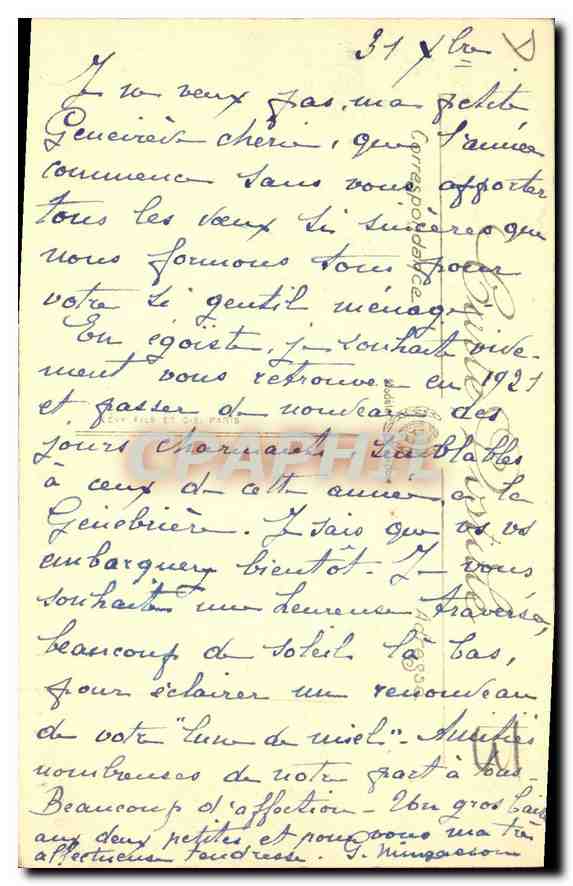 31 Xbre
Je ne veux pas, ma petite
Geneviève chérie, que l'année
commence sans vous apporter
tous les vœux si sincères que
nous formons tous pour
votre si gentil ménage
En égoïste, je souhaite vive-
ment vous retrouver en 1921
et passer de nouveau des
jours charmants, semblables
à ceux de cette année, à la
Genebrière. Je sais que vs vs
embarquez bientôt - Je vous
souhaite une heureuse traversée,
beaucoup de soleil là bas,
pour éclairer un renouveau
de votre "lune de miel" - Amitiés
nombreuses de notre part à tous -
Beaucoup d'affection - Un gros baiser
aux deux petites et pour vous ma très
affectueuse tendresse. G.
Correspondance
Carte Postale
Adresse
LEVY FILS ET CIE, PARIS
CPAPHIL